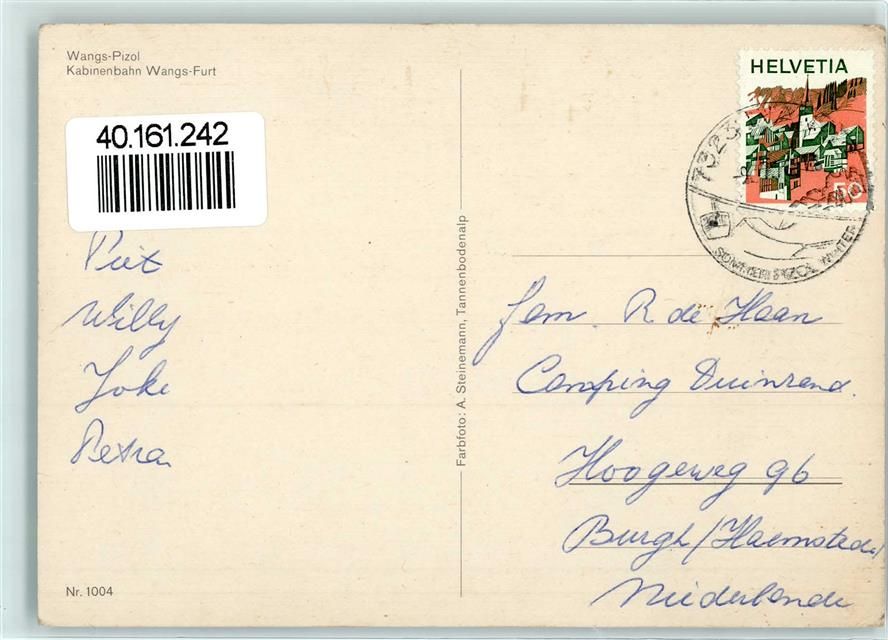 Wangs-Pizol
Kabinenbahn Wangs-Furt
40.161.242
Piet
Willy
Joke
Petra
Nr. 1004
Farbfoto: A. Steinemann, Tannenbodenalp
HELVETIA
7323
SOMMER PIZOL WINTER
Fam. R. de Haan
Camping Duinrand.
Hoogeweg 96
Burgh/Haamstede/
Niederlande